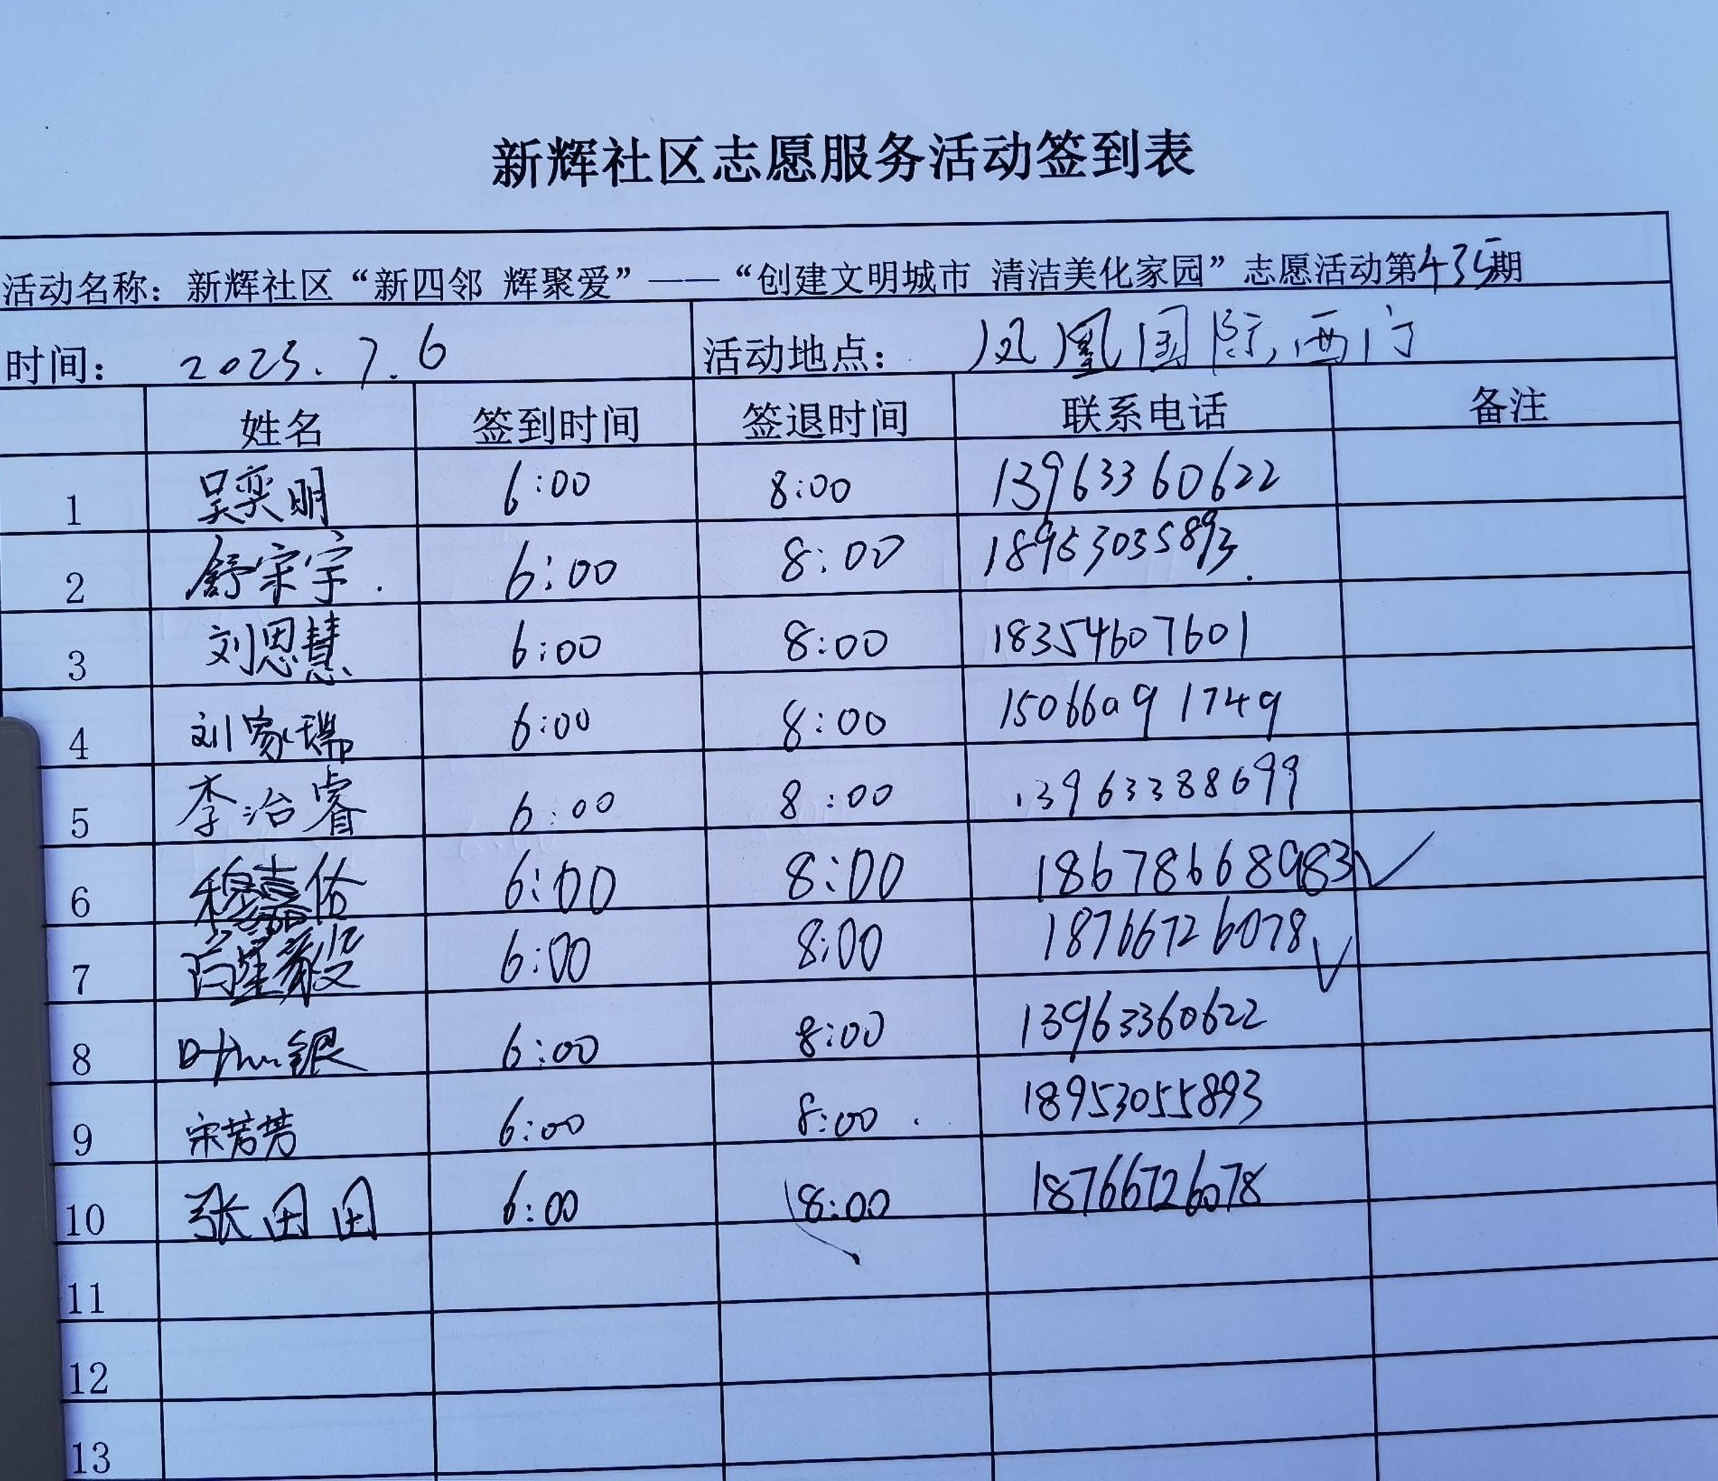 新辉社区志愿服务活动签到表
活动名称：新辉社区“新四邻 辉聚爱”——“创建文明城市 清洁美化家园”志愿活动第435期
时间： 2025.7.6 活动地点： 凤凰国际西门
姓名 签到时间 签退时间 联系电话 备注
1 吴奕明 6:00 8:00 13963360622
2 舒宗宇 6:00 8:00 18953035893
3 刘恩慧 6:00 8:00 18354607601
4 刘家瑞 6:00 8:00 15066091749
5 李治睿 6:00 8:00 13963388699
6 穆嘉俗 6:00 8:00 18678668983 ✓
7 6:00 8:00 18766726078 ✓
8 6:00 8:00 13963360622
9 宋芳芳 6:00 8:00 18953055893
10 张田田 6:00 8:00 18766726078
11
12
13